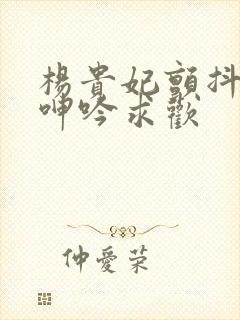 楊貴妃顫抖
呻吟求歡
仲愛荣